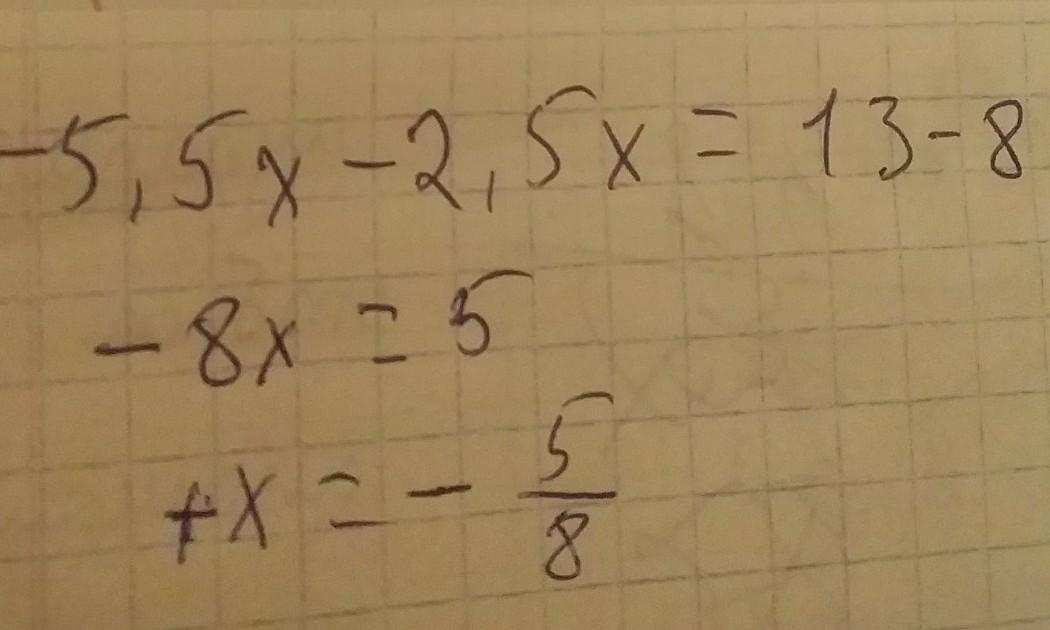 -5,5x-2,5x=13-8
-8x=5
+x=-5/8